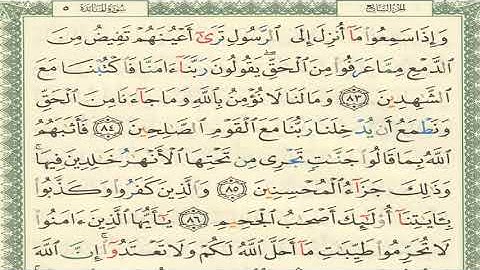 الجزء السابع ٥ سورة المائدة
وَإِذَا سَمِعُوا۟ مَآ أُنزِلَ إِلَى ٱلرَّسُولِ تَرَىٰٓ أَعْيُنَهُمْ تَفِيضُ مِنَ
ٱلدَّمْعِ مِمَّا عَرَفُوا۟ مِنَ ٱلْحَقِّ ۖ يَقُولُونَ رَبَّنَآ ءَامَنَّا فَٱكْتُبْنَا مَعَ
ٱلشَّـٰهِدِينَ ٨٣ وَمَا لَنَا لَا نُؤْمِنُ بِٱللَّهِ وَمَا جَآءَنَا مِنَ ٱلْحَقِّ
وَنَطْمَعُ أَن يُدْخِلَنَا رَبُّنَا مَعَ ٱلْقَوْمِ ٱلصَّـٰلِحِينَ ٨٤ فَأَثَـٰبَهُمُ
ٱللَّهُ بِمَا قَالُوا۟ جَنَّـٰتٍ تَجْرِى مِن تَحْتِهَا ٱلْأَنْهَـٰرُ خَـٰلِدِينَ فِيهَا ۚ
وَذَٰلِكَ جَزَآءُ ٱلْمُحْسِنِينَ ٨٥ وَٱلَّذِينَ كَفَرُوا۟ وَكَذَّبُوا۟
بِـَٔايَـٰتِنَآ أُو۟لَـٰٓئِكَ أَصْحَـٰبُ ٱلْجَحِيمِ ٨٦ يَـٰٓأَيُّهَا ٱلَّذِينَ ءَامَنُوا۟
لَا تُحَرِّمُوا۟ طَيِّبَـٰتِ مَآ أَحَلَّ ٱللَّهُ لَكُمْ وَلَا تَعْتَدُوٓا۟ ۚ إِنَّ ٱللَّهَ